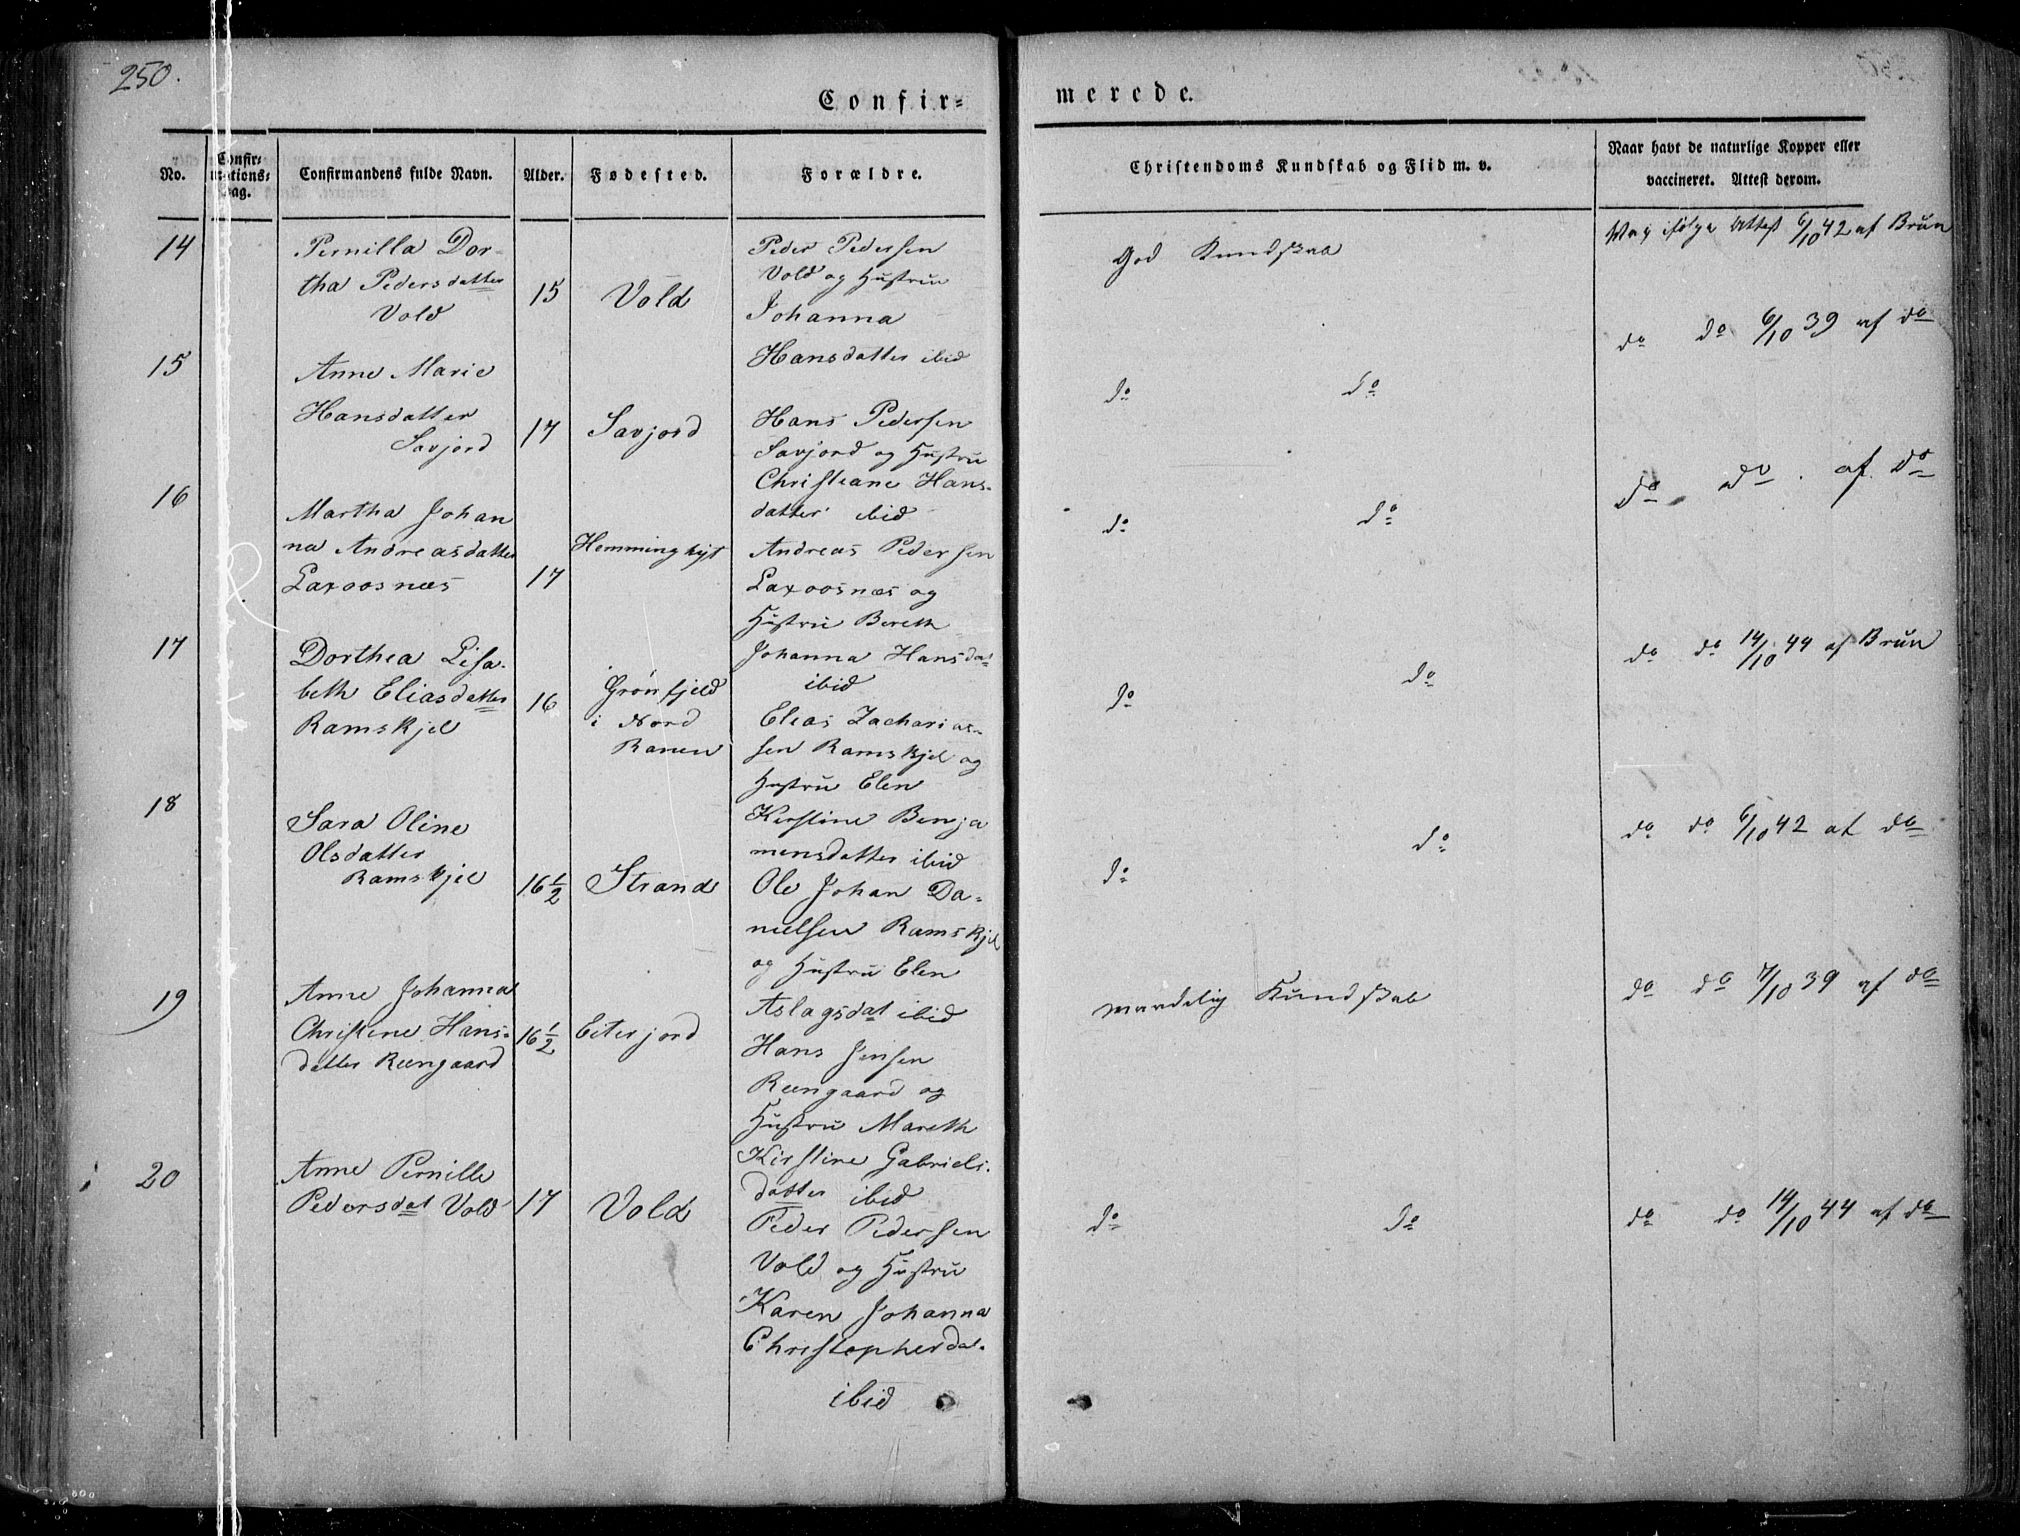 250.
Confir=
merede.
No.
Confir=
mations=
Dag.
Confirmandens fulde Navn.
Alder.
Fødested.
Forældre.
Christendoms Kundskab og Flid m. v.
Naar havt de naturlige Kopper eller
vaccineret. Attest derom.
14
Pernilla Dor-
tha Pedersdatter
Vold
15
Vold
Peder Pedersen
Vold og Hustru
Johanna
Hansdatter ibid
God Kundskab
Vax ifølge Attest 6/10 42 af Brun
15
Anne Marie
Hansdatter
Savjord
17
Savjord
Hans Pedersen
Savjord og Hustru
Christiane Hans-
datter ibid
do do
do do 6/10 39 af do
16
Martha Johan
na Andreasdatter
Laxoosnæs
17
Hemminghyt
Andreas Pedersen
Laxoosnæs og
Hustru Bereth
Johanna Hansdat
ibid
do do
do do . af do
17
Dorthea Lisa-
beth Eliasdatter
Ramskjel
16
Grønfjeld
i Nord
Ranen
Elias Zacharias-
sen Ramskjel og
Hustru Elen
Kirstine Benja
mensdatter ibid
do do
do do 14/10 44 af Brun
18
Sara Oline
Olsdatter
Ramskjel
16 1/2
Strand
Ole Johan Da-
nielsen Ramskjel
og Hustru Elen
Aslagsdat ibid
do do
do do 6/10 42 af do
19
Anne Johanna
Christine Hans-
datter Reengaard
16 1/2
Eiterjord
Hans Jensen
Reengaard og
Hustru Mareth
Kirstine Gabriels-
datter ibid
maadelig Kundskab
do do 7/10 39 af do
20
Anne Pernille
Pedersdat Vold
17
Vold
Peder Pedersen
Vold og Hustru
Karen Johanna
Christopherdat.
ibid
do do
do do 14/10 44 af do